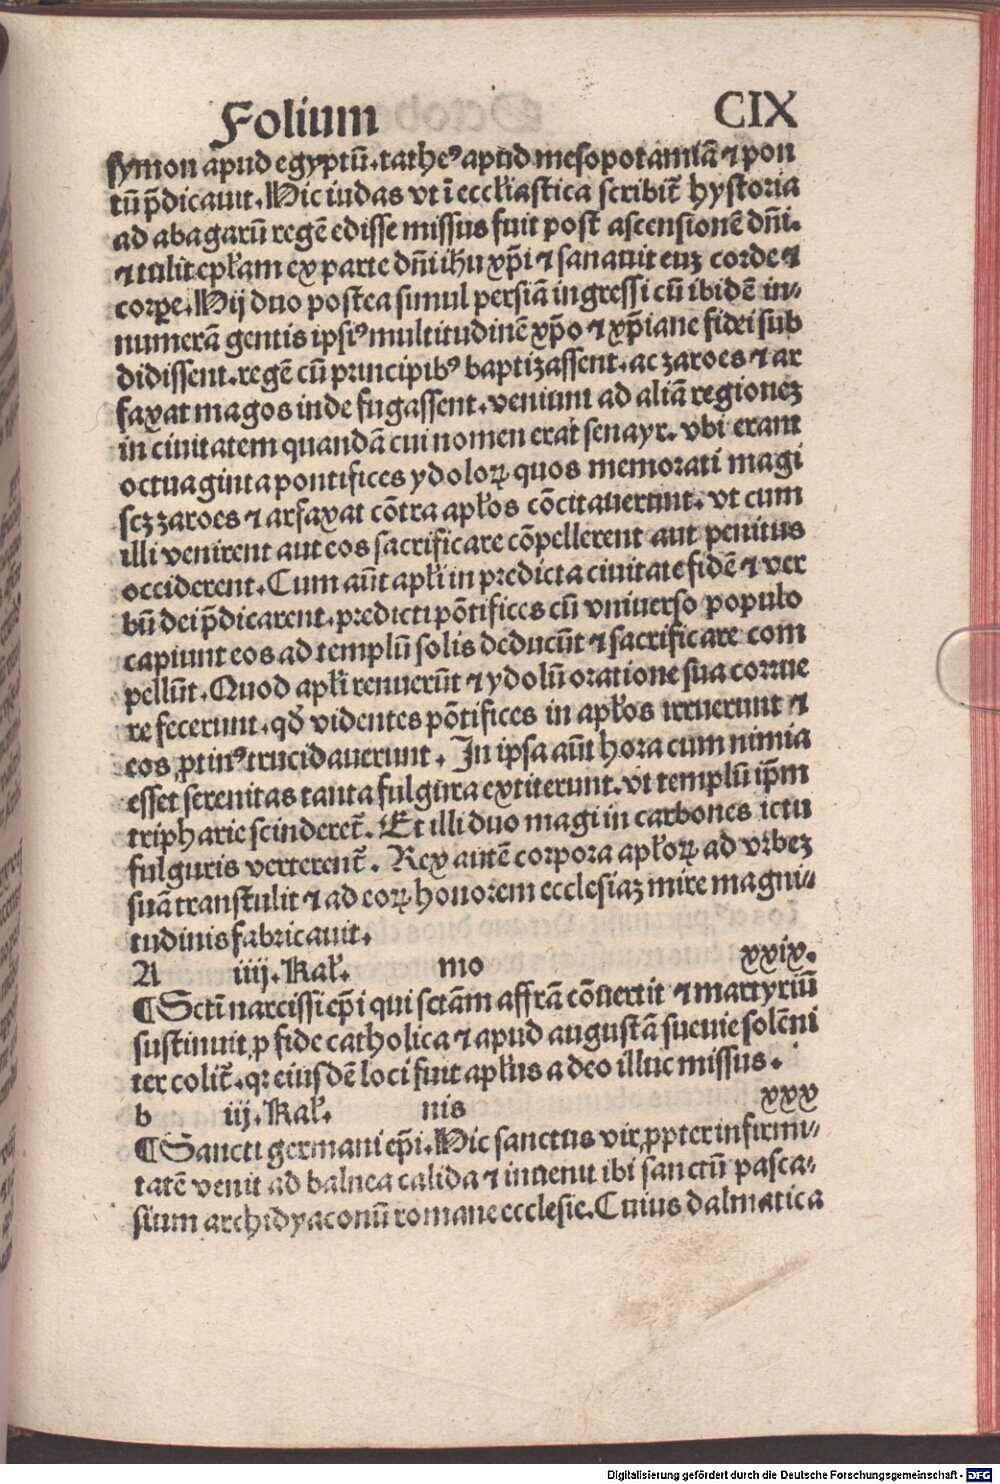 Folium CIX
symon apud egyptũ. tatheꝰ apud mesopotamiã ⁊ pon
tũ p̃dicauit. Hic iudas vt ĩ eccłiastica scribit̃ hystoria
ad abagarũ regẽ edisse missus fuit post ascensionẽ dñi.
⁊ tulit epłam ex parte dñi ihu xp̃i ⁊ sanauit euꝫ corde ⁊
corꝑe. Hij duo postea simul persiã ingressi cũ ibidẽ in⸗
numerã gentis ipsiꝰ multitudinẽ xp̃o ⁊ xp̃iane fidei sub
didissent. regẽ cũ principibꝰ baptizassent. ac zaroes ⁊ ar
faxat magos inde fugassent. veniunt ad aliã regioneꝫ
in ciuitatem quandã cui nomen erat senayr. vbi erant
octuaginta pontifices ydoloꝝ quos memorati magi
scꝫ zaroes ⁊ arfaxat cõtra apłos cõcitauerunt. vt cum
illi venirent aut eos sacrificare cõpellerent aut penitus
occiderent. Cum aũt apłi in predicta ciuitate fidẽ ⁊ ver
bũ dei p̃dicarent. predicti põtifices cũ vniuerso populo
capiunt eos ad templũ solis deducũt ⁊ sacrificare com
pellũt. Quod apłi renuerũt ⁊ ydolũ oratione sua corrue
re fecerunt. qđ videntes põtifices in apłos irruerunt ⁊
eos ꝓtinꝰ trucidauerunt. In ipsa aũt hora cum nimia
esset serenitas tanta fulgura extiterunt. vt templũ ip̃m
tripharie scinderet̃. Et illi duo magi in carbones ictu
fulguris verterent̃. Rex autẽ corpora apłoꝝ ad vrbeꝫ
suã transtulit ⁊ ad eoꝝ honorem ecclesiaꝫ mire magni⸗
tudinis fabricauit.
A iiij. Kał. mo xxix.
¶ Sctĩ narcissi ep̃i qui sctãm affrã cõuertit ⁊ martyriũ
sustinuit ꝓ fide catholica ⁊ apud augustã sueuie solẽni
ter colit̃. qꝛ eiusdẽ loci fuit apłus a deo illuc missus.
b iij. Kał. nis xxx
¶ Sancti germani ep̃i. Hic sanctus vir ꝓpter infirmi⸗
tatẽ venit ad balnea calida ⁊ inuenit ibi sanctũ pasca⸗
sium archidyaconũ romane ecclesie. Cuius dalmatica
Digitalisierung gefördert durch die Deutsche Forschungsgemeinschaft - DFG